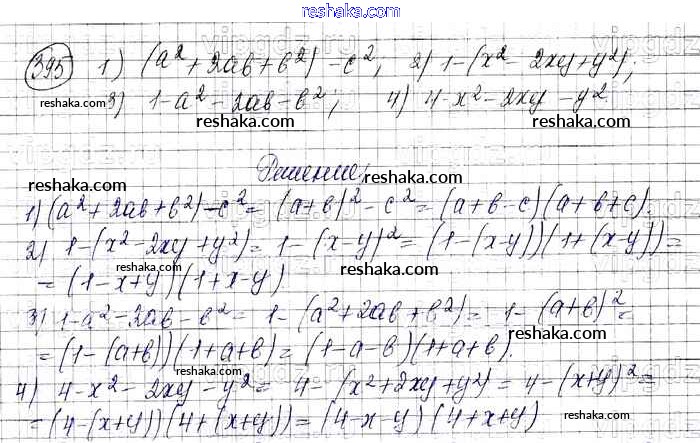 reshaka.com
395 1) (a² + 2ab + b²) - c²; 2) 1 - (x² - 2xy + y²);
reshaka.com
3) 1 - a² - 2ab - b²; 4) 4 - x² - 2xy - y²
reshaka.com reshaka.com
Решение:
reshaka.com reshaka.com
1) (a² + 2ab + b²) - c² = (a + b)² - c² = (a + b - c)(a + b + c).
reshaka.com
2) 1 - (x² - 2xy + y²) = 1 - (x - y)² = (1 - (x - y))(1 + (x - y)) =
reshaka.com reshaka.com
= (1 - x + y)(1 + x - y)
reshaka.com
3) 1 - a² - 2ab - b² = 1 - (a² + 2ab + b²) = 1 - (a + b)² =
reshaka.com
= (1 - (a + b))(1 + a + b) = (1 - a - b)(1 + a + b).
reshaka.com reshaka.com
4) 4 - x² - 2xy - y² = 4 - (x² + 2xy + y²) = 4 - (x + y)² =
= (4 - (x + y))(4 + (x + y)) = (4 - x - y)(4 + x + y)
reshaka.com reshaka.com